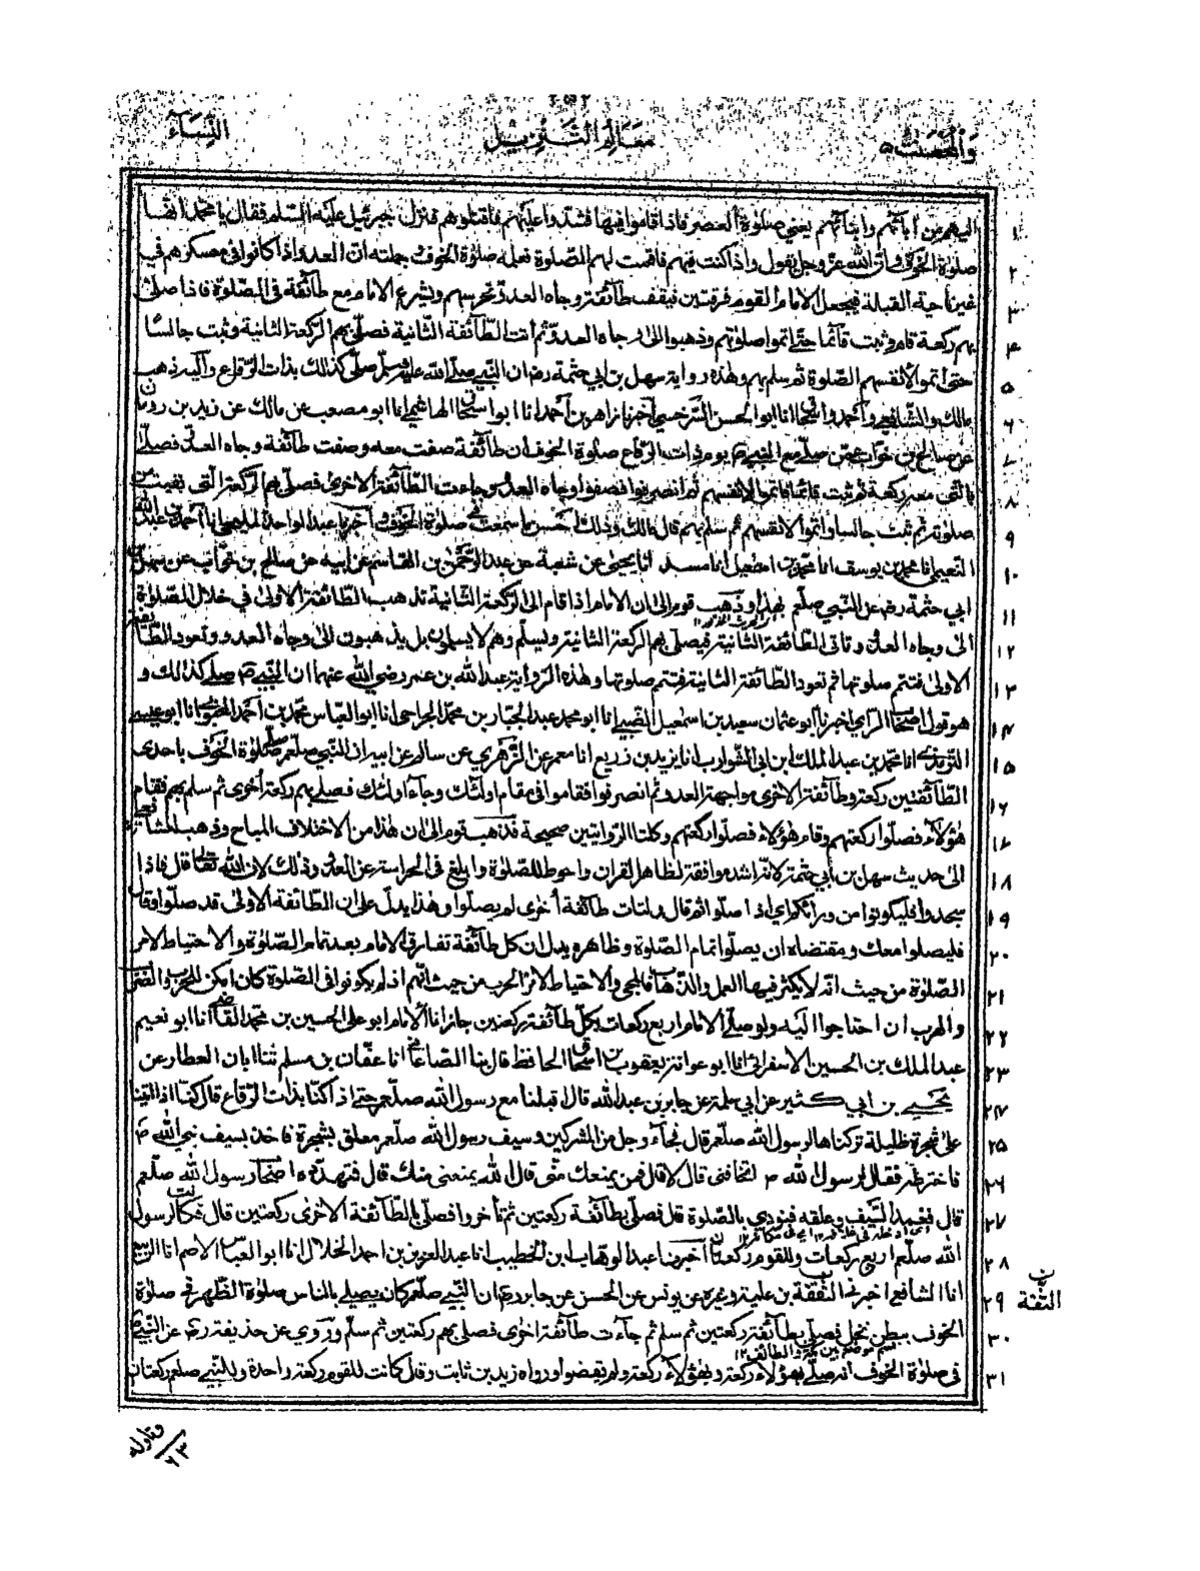 والمحصنت ۵ معالم التنزيل النساء
اليهم من آبائهم وأبنائهم يعني صلوة العصر فاذا قاموا فيها فشدوا عليهم فاقتلوهم فنزل جبرئيل عليه السلام فقال يا محمد انها ۱
صلوة الخوف وان الله عز وجل يقول واذا كنت فيهم فاقمت لهم الصلوة فعلمه صلوة الخوف وجملته ان العدو اذا كانوا في معسكرهم في ۲
غير ناحية القبلة فيجعل الامام القوم فرقتين فيقف طائفة وجاه العدو تحرسهم ويشرع الامام مع طائفة في الصلوة فاذا صلى ۳
بهم ركعة قام وثبت قائما حتى اتموا صلوتهم وذهبوا الى وجاه العدو ثم اتت الطائفة الثانية فصلى بهم الركعة الثانية وثبت جالسا ۴
حتى اتموا لانفسهم الصلوة ثم سلم بهم وهذه رواية سهل بن ابي حثمة رض ان النبي صلى الله عليه وسلم صلى كذالك بذات الرقاع واليه ذهب ۵
مالك والشافعي واحمد واسحق انا ابو الحسن السرخسي اخبرنا زاهر بن احمد انا ابو اسحق الهاشمي انا ابو مصعب عن مالك عن زيد بن رومان ۶
عن صالح بن خوات عمن صلى مع النبي ص يوم ذات الرقاع صلوة الخوف ان طائفة صفت معه وصفت طائفة وجاه العدو فصلى ۷
بالتي معه ركعة ثم ثبت قائما فاتموا لانفسهم ثم انصرفوا فصفوا وجاه العدو وجاءت الطائفة الاخرى فصلى بهم الركعة التي بقيت من ۸
صلوته ثم ثبت جالسا واتموا لانفسهم ثم سلم بهم قال مالك وذلك احسن ما سمعت في صلوة الخوف واخبرنا عبد الواحد المليحي انا احمد بن عبد الله ۹
النعيمي انا محمد بن يوسف انا محمد بن اسمعيل انا مسدد انا يحيى عن شعبة عن عبد الرحمن بن القاسم عن ابيه عن صالح بن خوات عن سهل بن ۱۰
ابي حثمة رض عن النبي صلعم بهذا وذهب قوم الى ان الامام اذا قام الى الركعة الثانية تذهب الطائفة الاولى في خلال الصلوة ۱۱
الى وجاه العدو وتاتي الطائفة الثانية فيصلي بهم الركعة الثانية ويسلم وهم لا يسلمون بل يذهبون الى وجاه العدو وتعود الطائفة ۱۲
الاولى فتتم صلوتها ثم تعود الطائفة الثانية فتتم صلوتها وهذه الرواية عبد الله بن عمر رضي الله عنهما ان النبي ص صلى كذالك و ۱۳
هو قول اصحاب الراي اخبرنا ابو عثمان سعيد بن اسمعيل الضبي انا ابو محمد عبد الجبار بن محمد الجراحي انا ابو العباس محمد بن احمد المحبوبي انا ابو عيسى ۱۴
الترمذي انا محمد بن عبد الملك ابن ابي الشوارب انا يزيد بن زريع انا معمر عن الزهري عن سالم عن ابيه ان النبي صلعم صلى صلوة الخوف باحدى ۱۵
الطائفتين ركعة وطائفة الاخرى مواجهة العدو ثم انصرفوا فقاموا في مقام اولئك وجاء اولئك فصلى بهم ركعة اخرى ثم سلم بهم فقام ۱۶
هؤلاء فصلوا ركعتهم وقام هؤلاء فصلوا ركعتهم وكلتا الروايتين صحيحة فذهب قوم الى ان هذا من الاختلاف المباح وذهب الشافعي ۱۷
الى حديث سهل بن ابي حثمة لانه اشد موافقة لظاهر القران واحوط للصلوة وابلغ في الحراسة عن العدو وذلك لان الله تعالى قال فاذا ۱۸
سجدوا فليكونوا من ورائكم اي اذا صلوا ثم قال ولتات طائفة اخرى لم يصلوا وهذا يدل على ان الطائفة الاولى قد صلوا وقال ۱۹
فليصلوا معك ومقتضاه ان يصلوا تمام الصلوة وظاهره يدل ان كل طائفة تفارق الامام بعد تمام الصلوة والاحتياط لامر ۲۰
الصلوة من حيث انه لا يكثر فيها العمل والذهاب والمجي والاحتياط لامر الحرب من حيث انهم اذا لم يكونوا في الصلوة كان امكن للحرب والضرب ۲۱
والهرب ان احتاجوا اليه ولو صلى الامام اربع ركعات بكل طائفة ركعتين جاز انا الامام ابو علي الحسين بن محمد القاضي انا ابو نعيم ۲۲
عبد الملك بن الحسين الاسفرائني انا ابو عوانة يعقوب بن اسحق الحافظ قال ثنا الصاغاني انا عفان بن مسلم ثنا ابان العطار عن ۲۳
يحيى بن ابي كثير عن ابي سلمة عن جابر بن عبد الله قال اقبلنا مع رسول الله صلعم حتى اذا كنا بذات الرقاع قال كنا اذا اتينا ۲۴
على شجرة ظليلة تركناها لرسول الله صلعم قال فجاء رجل من المشركين وسيف رسول الله صلعم معلق بشجرة فاخذ بسيف نبي الله ص ۲۵
فاخترطه فقال لرسول الله ص اتخافني قال لا قال فمن يمنعك مني قال الله يمنعني منك قال فتهدده اصحاب رسول الله صلعم ۲۶
قال فغمد السيف وعلقه فنودي بالصلوة قال فصلى بطائفة ركعتين ثم تأخروا فصلى بالطائفة الاخرى ركعتين قال فكانت لرسول ۲۷
الله صلعم اربع ركعات وللقوم ركعتان اخبرنا عبد الوهاب ابن الخطيب انا عبد العزيز بن احمد الخلال انا ابو العباس الاصم انا الربيع ۲۸
انا الشافعي اخبرني الثقة بن علية وغيره عن يونس عن الحسن عن جابر رض ان النبي صلعم كان يصلي بالناس صلوة الظهر في صلوة ۲۹
الثقة
الخوف ببطن نخل فصلى بطائفة ركعتين ثم سلم ثم جاءت طائفة اخرى فصلى بهم ركعتين ثم سلم وروي عن حذيفة رض عن النبي ص ۳۰
اسم موضع بين مكة والطائف ۱۲
في صلوة الخوف انه صلى بهؤلاء ركعة وبهؤلاء ركعة ولم يقضوا ورواه زيد بن ثابت وقال كانت للقوم ركعة واحدة وللنبي صلعم ركعتان ۳۱
وتاوله